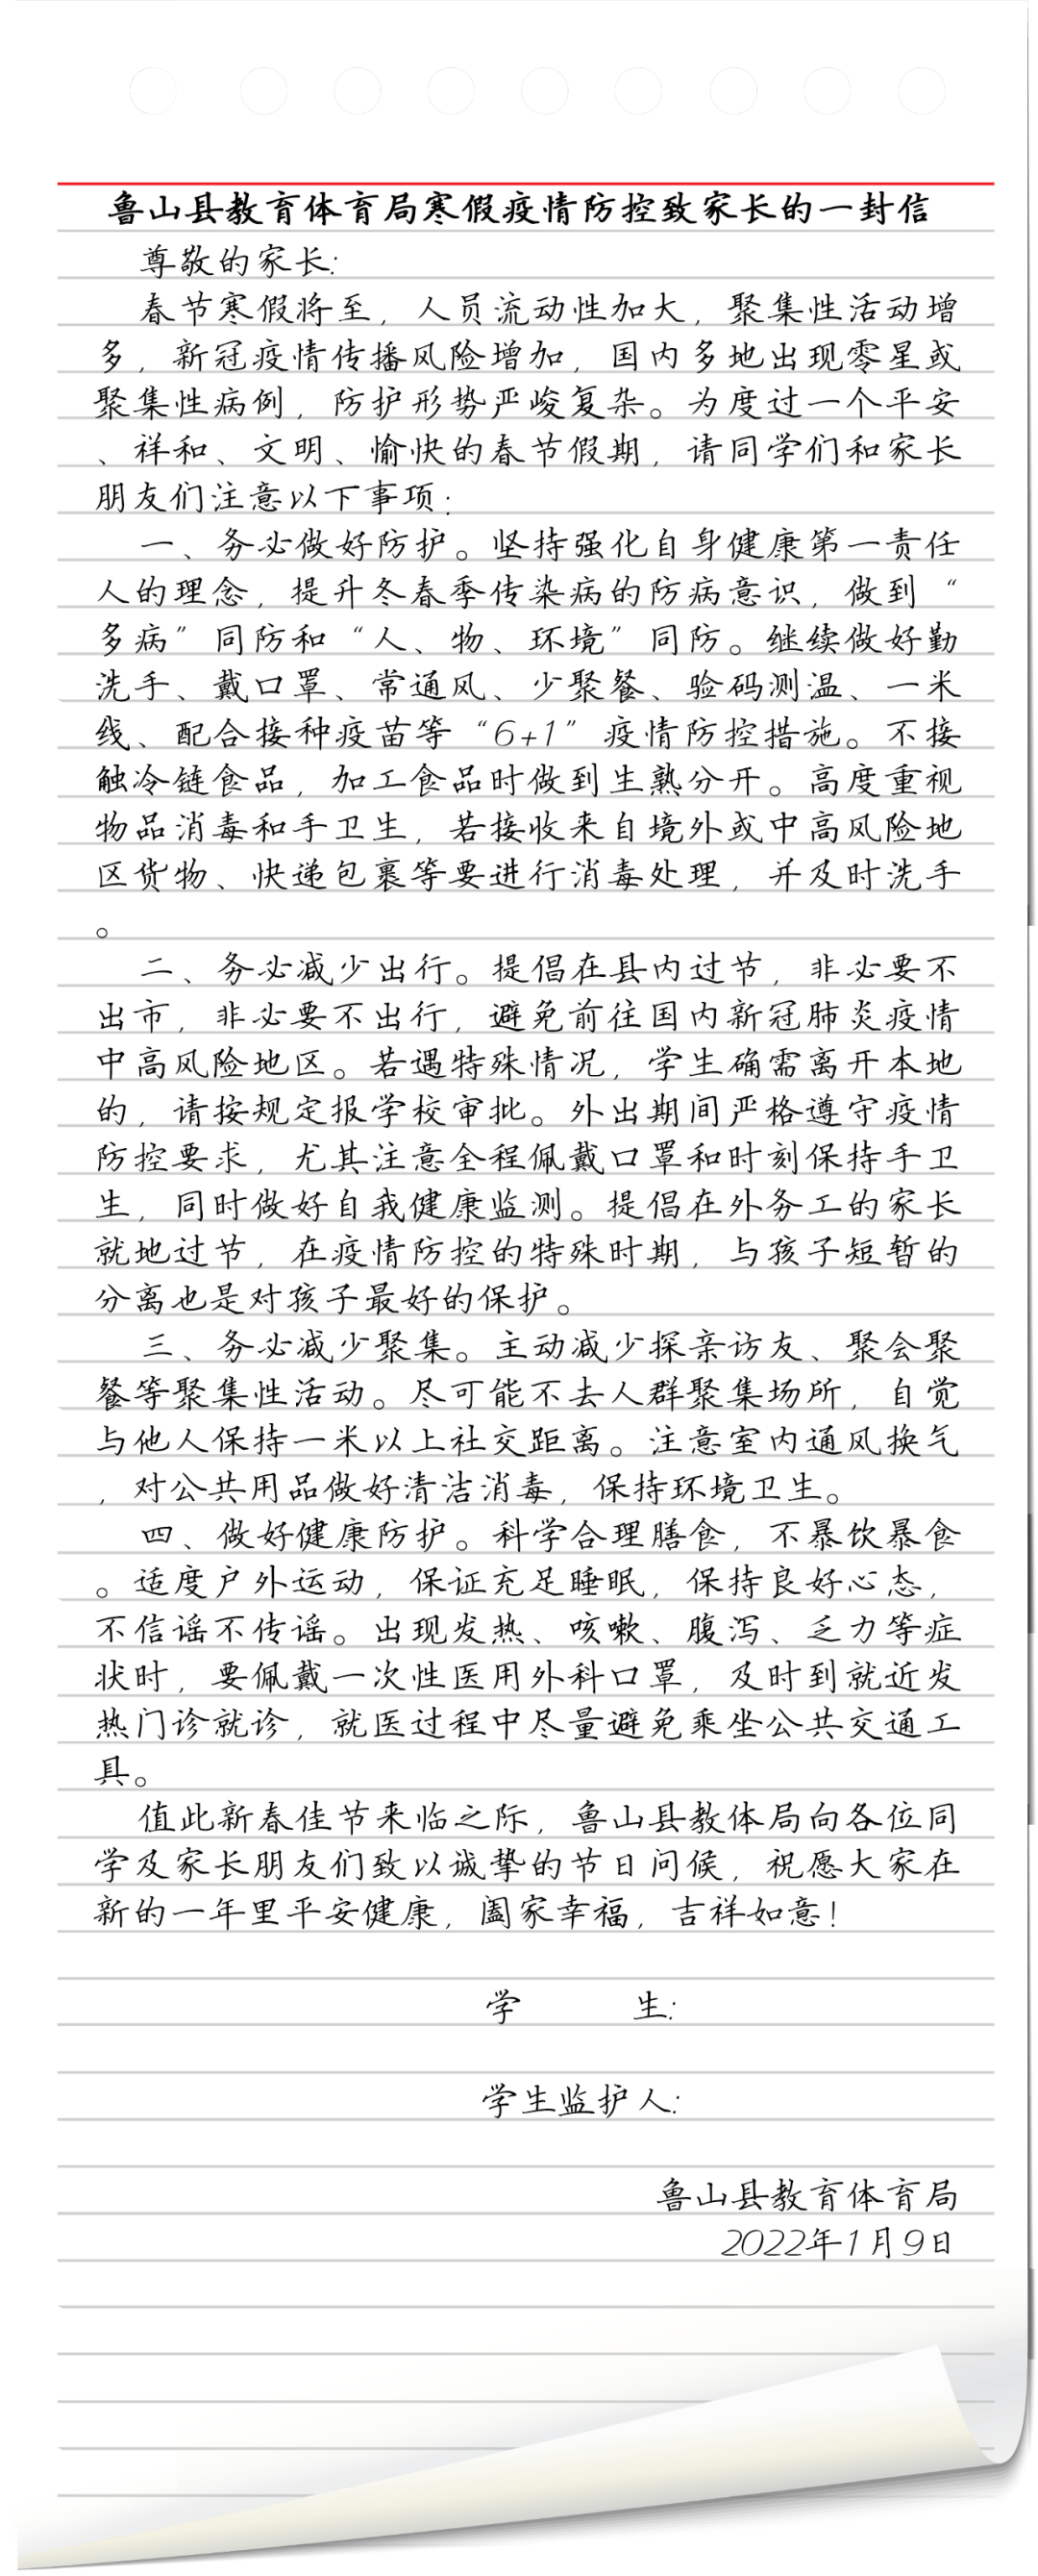 鲁山县教育体育局寒假疫情防控致家长的一封信
尊敬的家长:
春节寒假将至，人员流动性加大，聚集性活动增
多，新冠疫情传播风险增加，国内多地出现零星或
聚集性病例，防护形势严峻复杂。为度过一个平安
、祥和、文明、愉快的春节假期，请同学们和家长
朋友们注意以下事项：
一、务必做好防护。坚持强化自身健康第一责任
人的理念，提升冬春季传染病的防病意识，做到“
多病”同防和“人、物、环境”同防。继续做好勤
洗手、戴口罩、常通风、少聚餐、验码测温、一米
线、配合接种疫苗等“6+1”疫情防控措施。不接
触冷链食品，加工食品时做到生熟分开。高度重视
物品消毒和手卫生，若接收来自境外或中高风险地
区货物、快递包裹等要进行消毒处理，并及时洗手
。
二、务必减少出行。提倡在县内过节，非必要不
出市，非必要不出行，避免前往国内新冠肺炎疫情
中高风险地区。若遇特殊情况，学生确需离开本地
的，请按规定报学校审批。外出期间严格遵守疫情
防控要求，尤其注意全程佩戴口罩和时刻保持手卫
生，同时做好自我健康监测。提倡在外务工的家长
就地过节，在疫情防控的特殊时期，与孩子短暂的
分离也是对孩子最好的保护。
三、务必减少聚集。主动减少探亲访友、聚会聚
餐等聚集性活动。尽可能不去人群聚集场所，自觉
与他人保持一米以上社交距离。注意室内通风换气
，对公共用品做好清洁消毒，保持环境卫生。
四、做好健康防护。科学合理膳食，不暴饮暴食
。适度户外运动，保证充足睡眠，保持良好心态，
不信谣不传谣。出现发热、咳嗽、腹泻、乏力等症
状时，要佩戴一次性医用外科口罩，及时到就近发
热门诊就诊，就医过程中尽量避免乘坐公共交通工
具。
值此新春佳节来临之际，鲁山县教体局向各位同
学及家长朋友们致以诚挚的节日问候，祝愿大家在
新的一年里平安健康，阖家幸福，吉祥如意！
学 生:
学生监护人:
鲁山县教育体育局
2022年1月9日